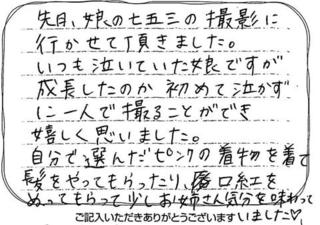 先日、娘の七五三の撮影に
行かせて頂きました。
いつも泣いていた娘ですが
成長したのか初めて泣かず
に一人で撮ることができ
嬉しく思いました。
自分で選んだピンクの着物を着て
髪をやってもらったり、口紅を
ぬってもらって少しお姉さん気分を味わって
いました♡
ご記入いただきありがとうございます